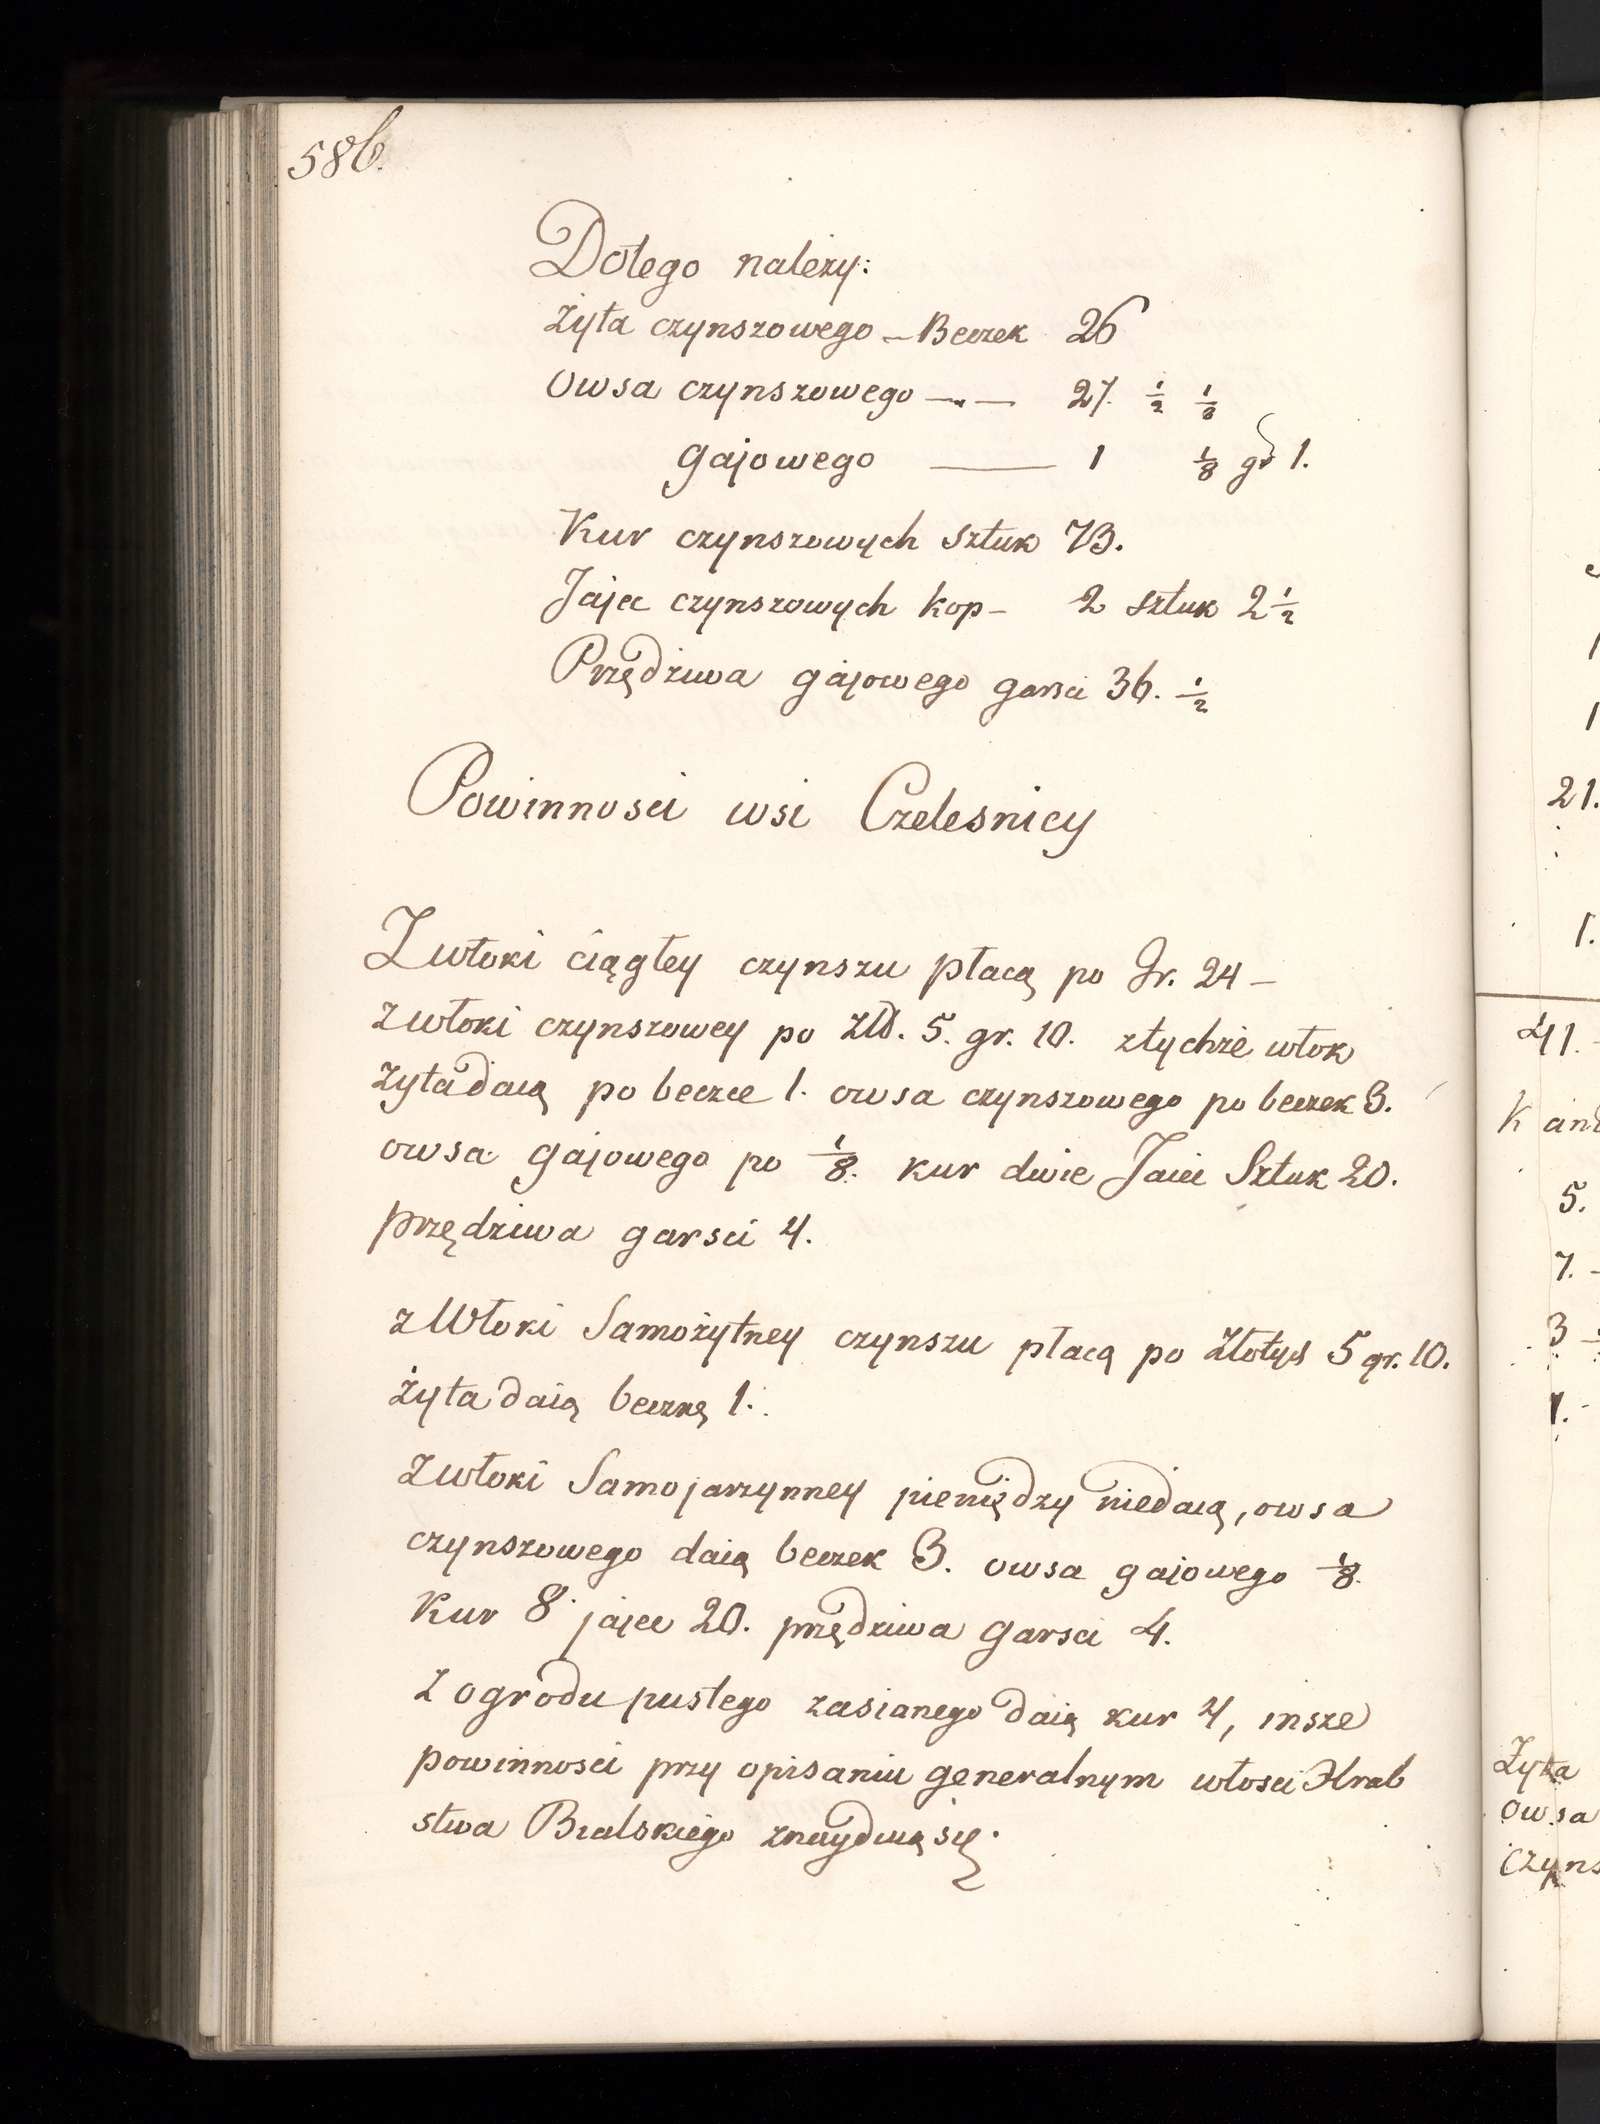 586.
Dotego należy:
Żyta czynszowego — Beczek 26
Owsa czynszowego — — 27. 1/2 1/8
gajowego — 1 1/8 gr 1.
Kur czynszowych sztuk 73.
Jajec czynszowych kop — 2 sztuk 2 1/2
Przędziwa gajowego garsci 36. 1/2
Powinnosci wsi Czelesnicy
Zwłoki ciągłey czynszu płacą po Gr. 24 —
zwłoki czynszowey po Złł. 5. gr. 10. ztychże włok
żyta daią po beczce 1. owsa czynszowego po beczek 3.
owsa gajowego po 1/8. kur dwie Jaiec Sztuk 20.
przędziwa garsci 4.
z Włoki Samożytney czynszu płacą po złotych 5 gr. 10.
żyta daią beczkę 1.
zwłoki Samojarzynney pieniędzy niedaią, owsa
czynszowego daią beczek 3. owsa gajowego 1/8.
Kur 8 jajec 20. przędziwa garsci 4.
z ogrodu pustego zasianego daią kur 4, insze
powinności przy opisaniu generalnym włosci Hrab
stwa Bialskiego znaydują się.
21.
1.
41.
5.
7.
3
1.
Żyta
owsa
czyns